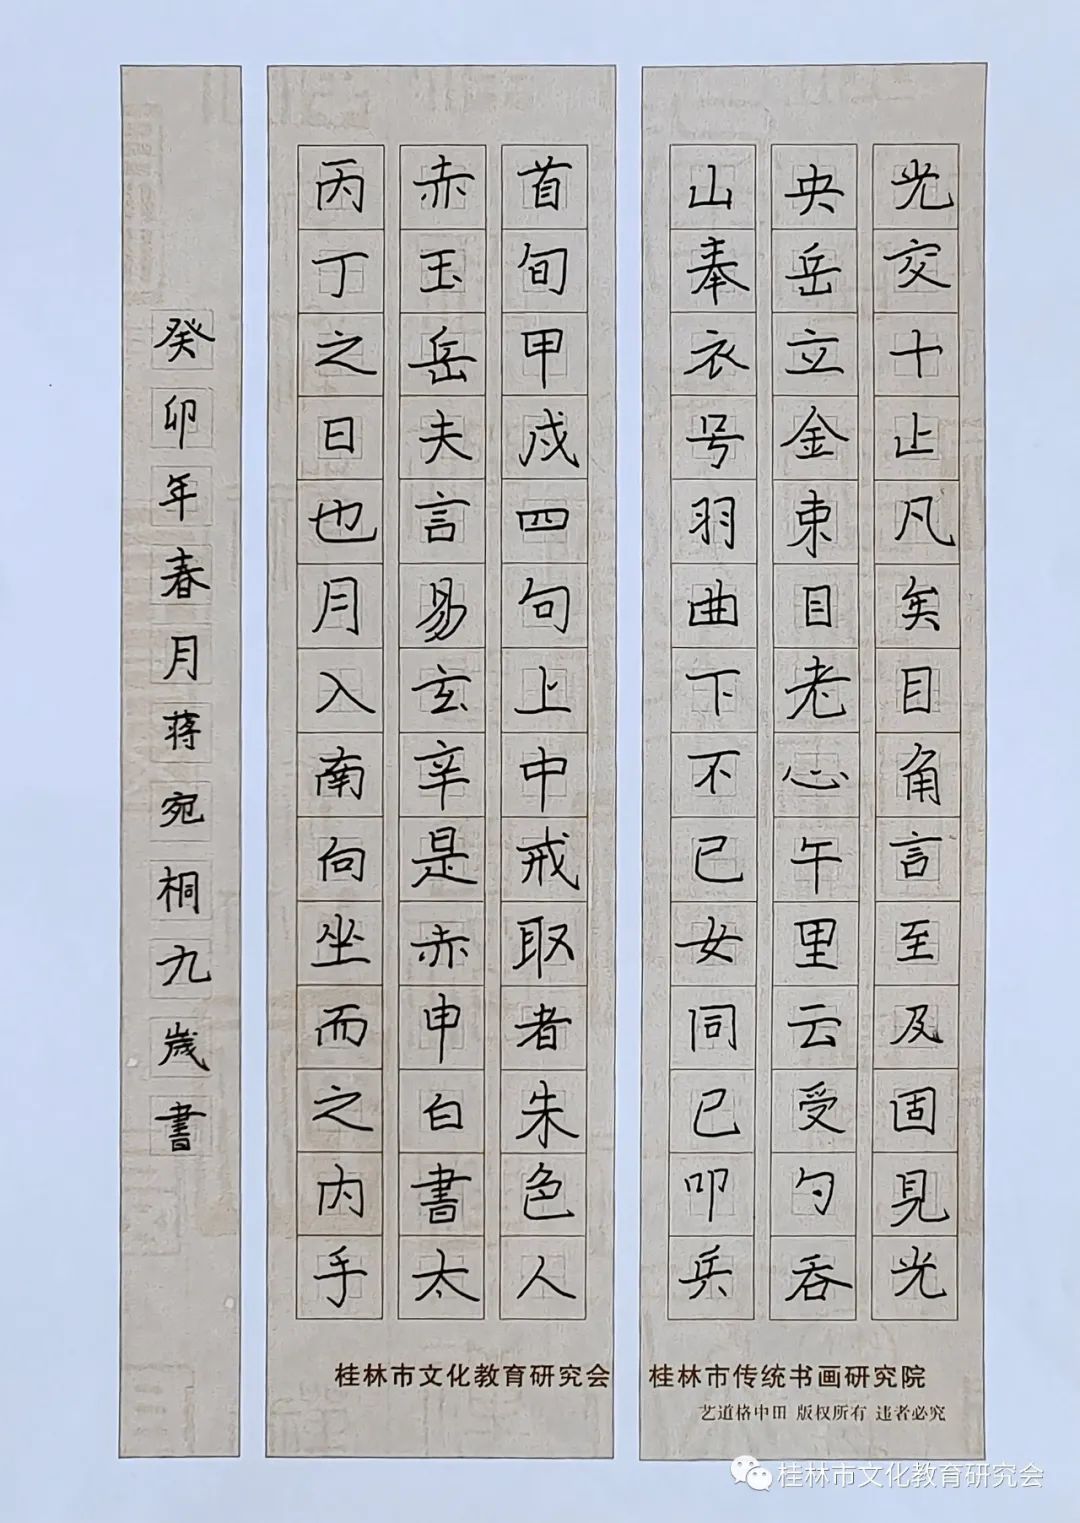 光交十止凡矣目角言至及固見光
央岳立金束目老心午里云受勺吞
山奉衣号羽曲下不已女同已叩兵
首旬甲戍四句上中戒取者朱色人
赤玉岳夫言易玄辛是赤申白書太
丙丁之日也月入南向坐而之内手
癸卯年春月蒋宛桐九歲書
桂林市文化教育研究会
桂林市传统书画研究院
艺道格中田 版权所有 违者必究
桂林市文化教育研究会